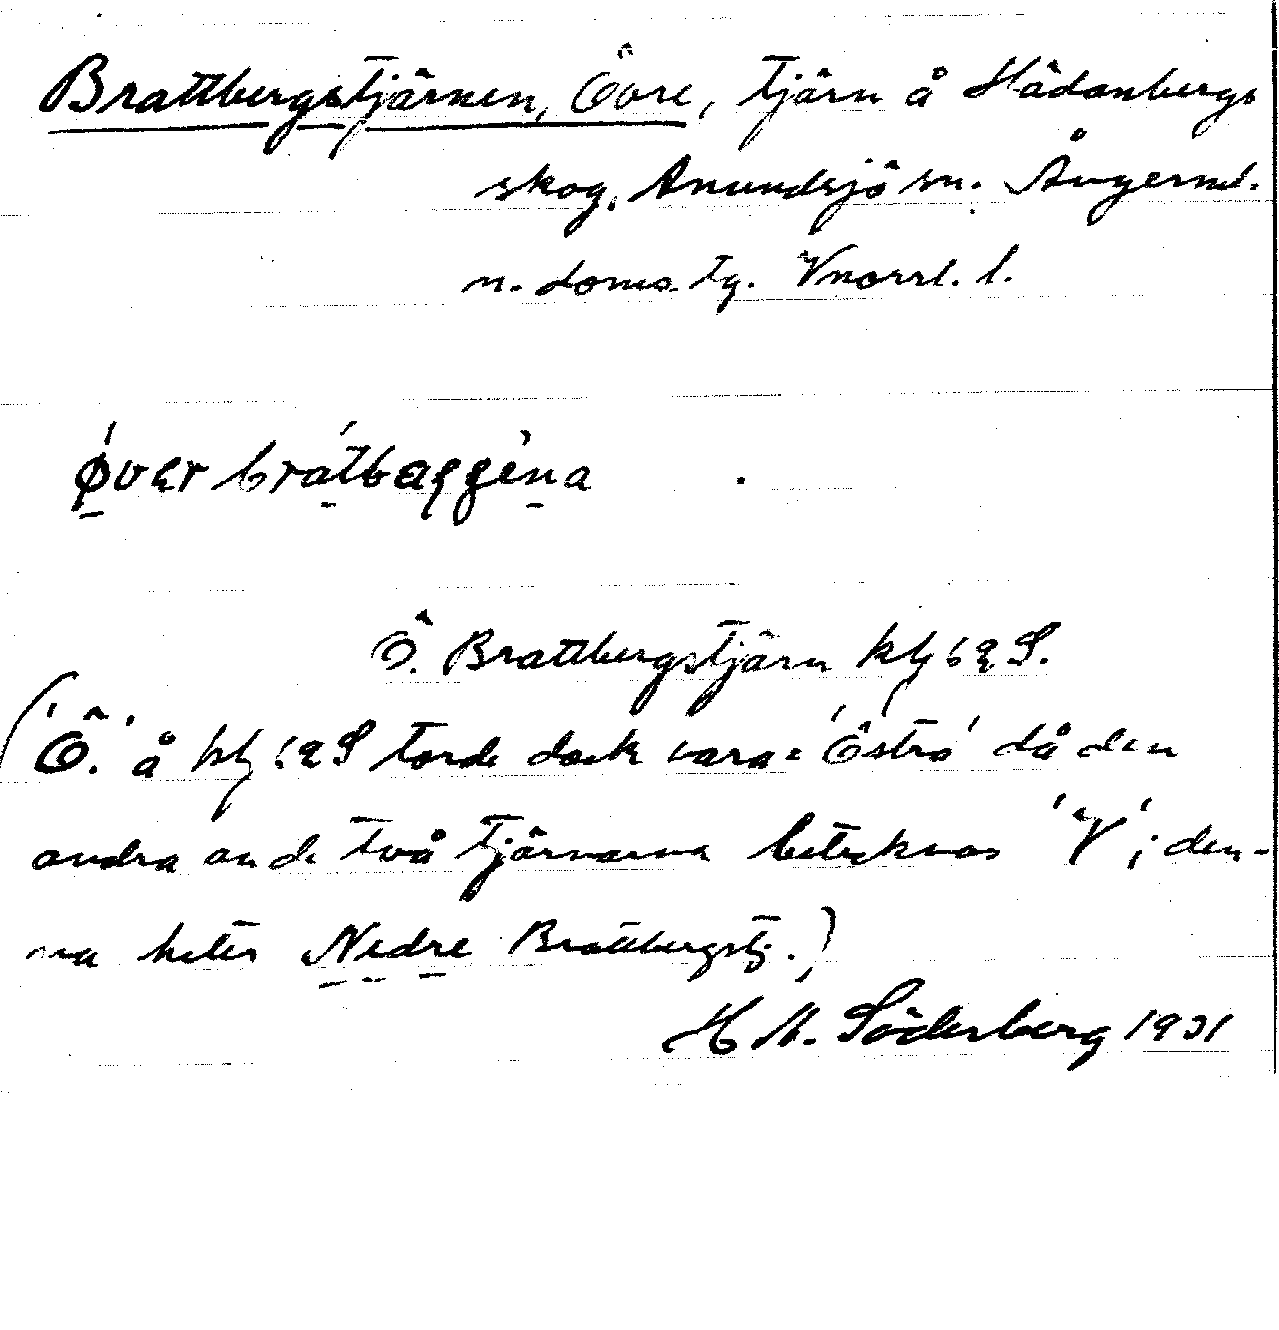 Brattbergstjärnen, Övre, tjärn å Hädanbergs
skog, Anundsjö sn. Ångerml.
n. doms. tg. Vnorrl. l.
Ö. Brattbergstjärn ktj 62 S.
('Ö.' å ktj 62 S torde dock vara = 'Östra' då den
andra av de två tjärnarna betecknas 'V'; den-
na heter Nedre Brattbergstj.)
H M. Söderberg 1931